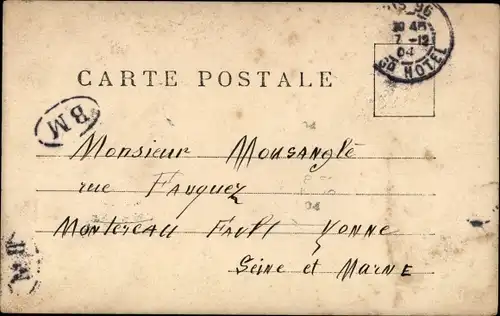 96
7-12
04
GD HOTEL
CARTE POSTALE
BM
Monsieur Mousanglé
rue Fauquez
Montereau Fault Yonne
Seine et Marne
BM